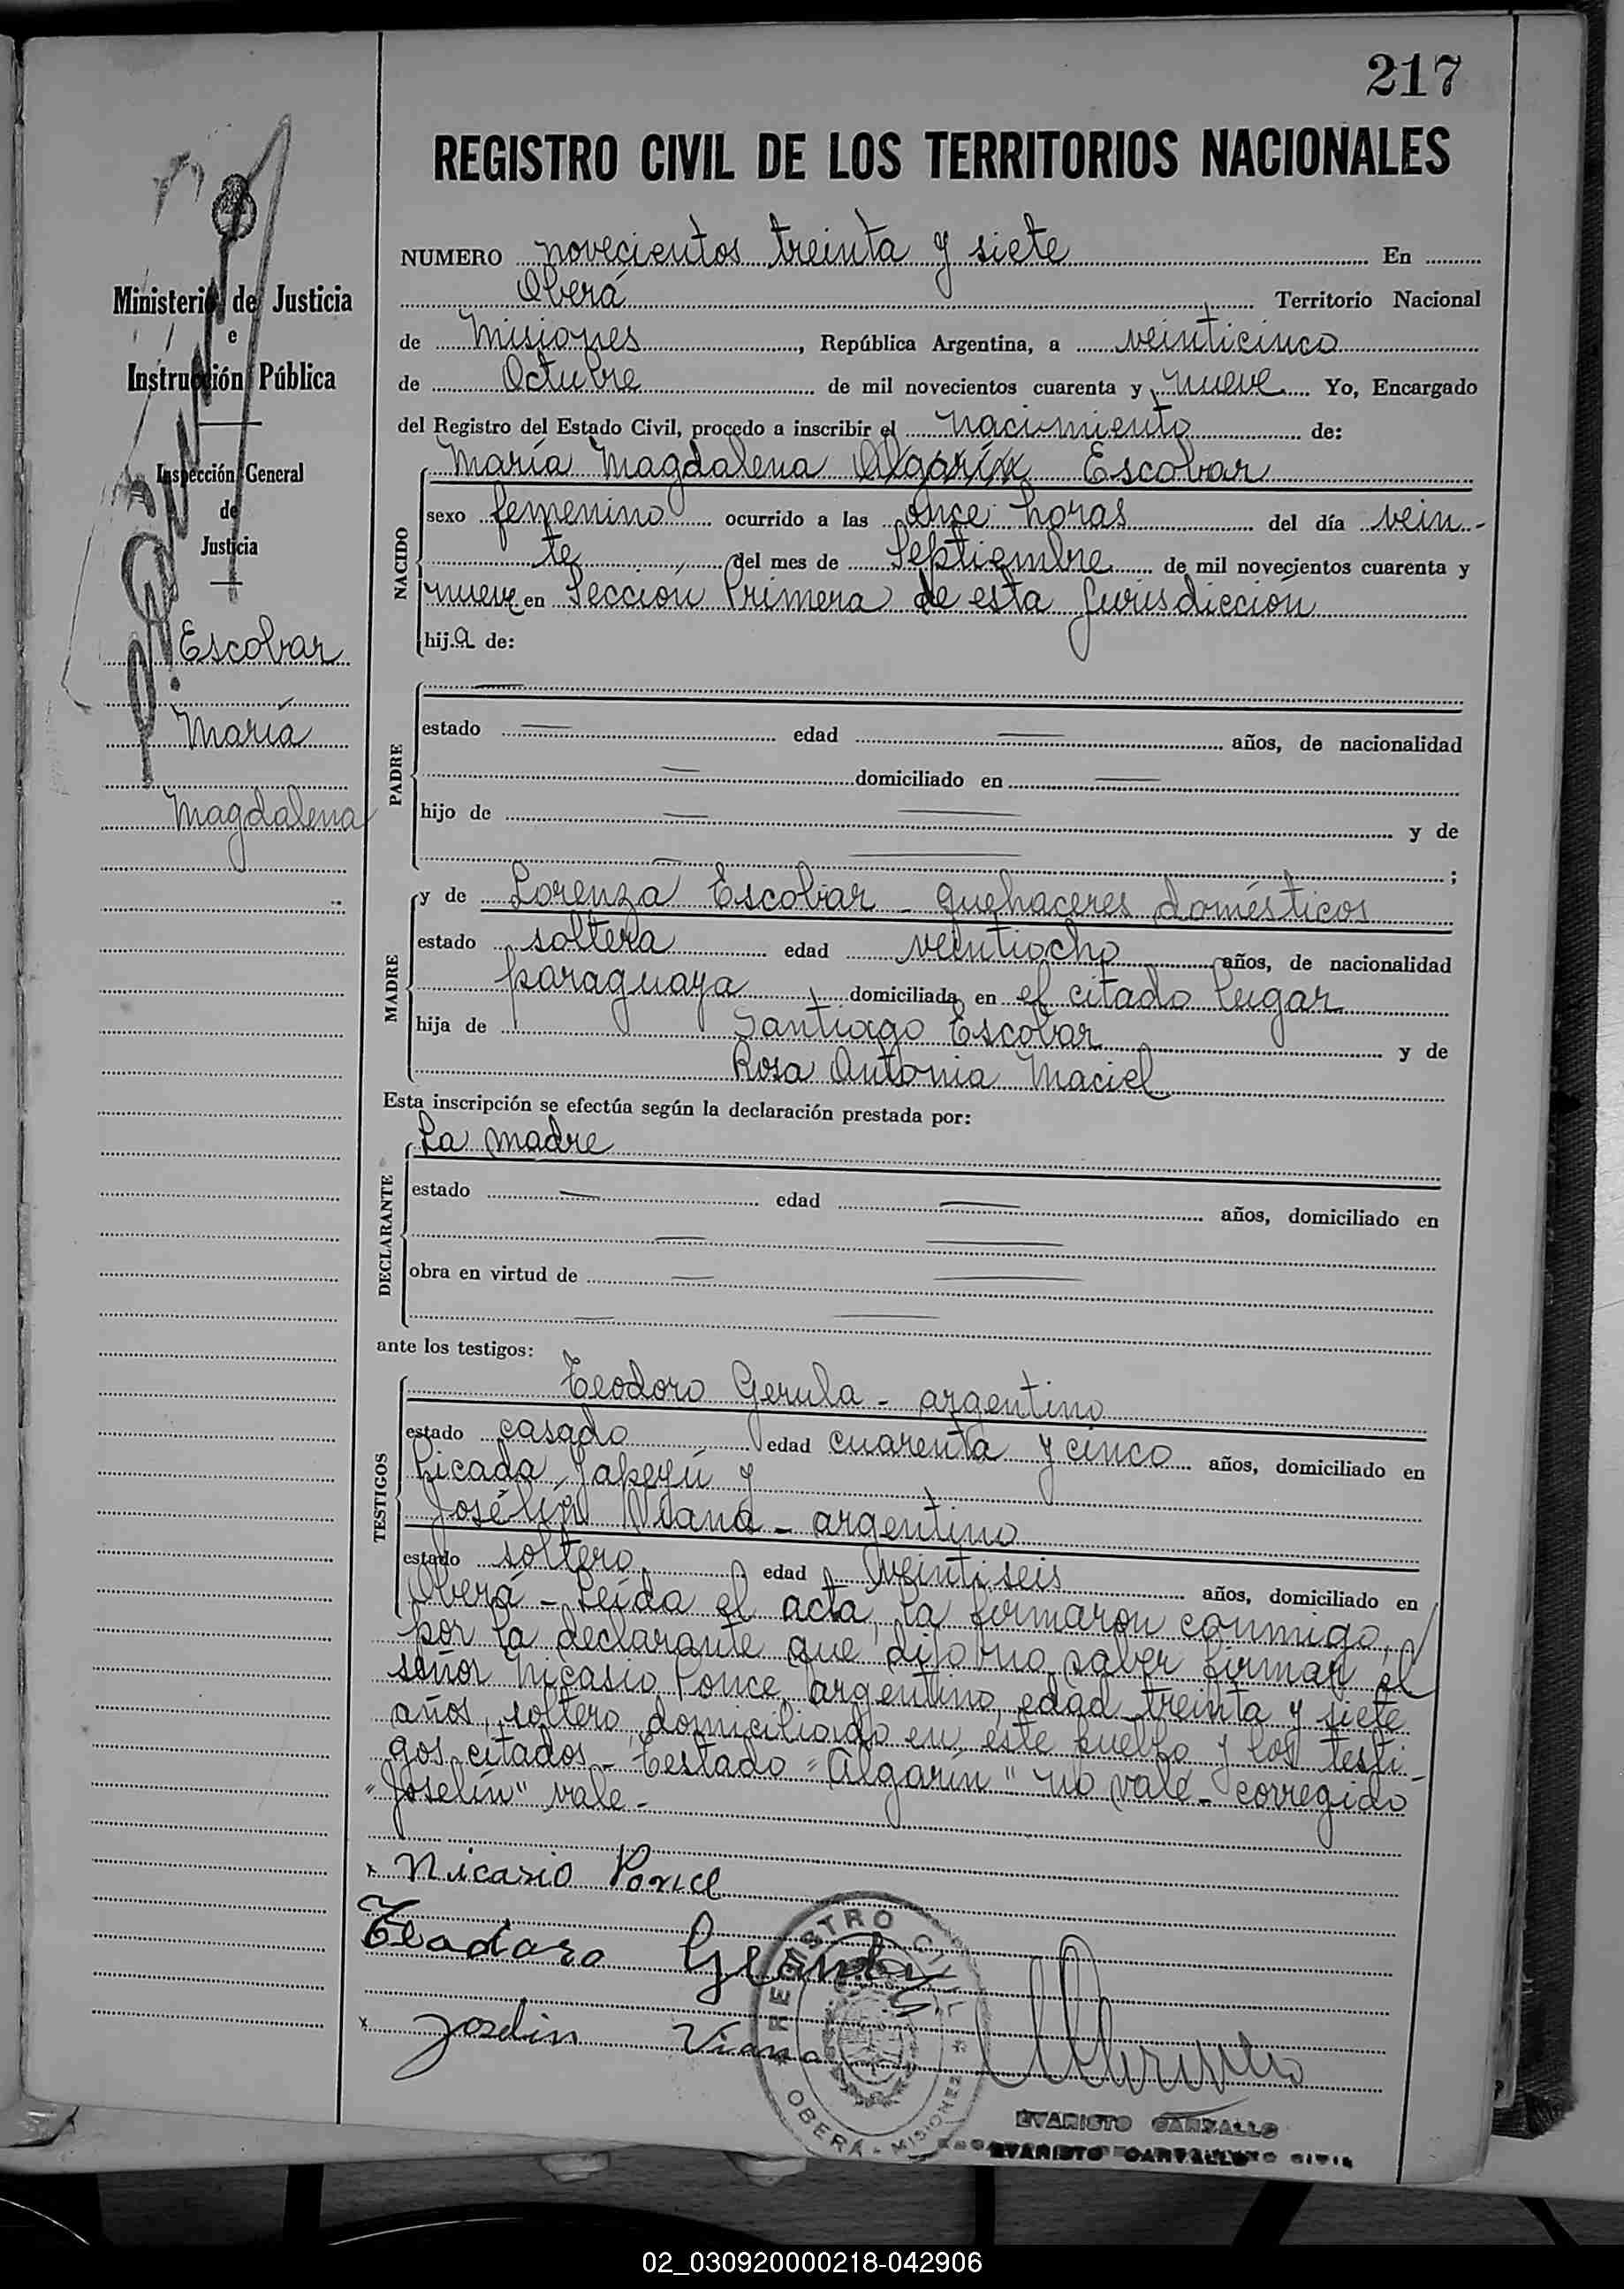 217
REGISTRO CIVIL DE LOS TERRITORIOS NACIONALES
Ministerio de Justicia
e
Instrucción Pública
Inspección General
de
Justicia
Escobar
María
Magdalena
NUMERO novecientos treinta y siete En
Oberá Territorio Nacional
de Misiones, República Argentina, a veinticinco
de Octubre de mil novecientos cuarenta y nueve Yo, Encargado
del Registro del Estado Civil, procedo a inscribir el nacimiento de:
María Magdalena Algarín Escobar
NACIDO
sexo femenino ocurrido a las once horas del día vein-
te del mes de Septiembre de mil novecientos cuarenta y
nueve en Sección Primera de esta Jurisdicción
hija de:
PADRE
estado edad años, de nacionalidad
domiciliado en
hijo de y de
;
MADRE
y de Lorenza Escobar - quehaceres domésticos
estado soltera edad veintiocho años, de nacionalidad
paraguaya domiciliada en el citado lugar
hija de Santiago Escobar y de
Rosa Antonia Maciel
Esta inscripción se efectúa según la declaración prestada por:
La madre
DECLARANTE
estado edad años, domiciliado en
obra en virtud de
ante los testigos:
TESTIGOS
Teodoro Gerula - argentino
estado casado edad cuarenta y cinco años, domiciliado en
Picada Yapeyú y
Josélín Viana - argentino
estado soltero edad veintiseis años, domiciliado en
Oberá - Leída el acta, la firmaron conmigo,
por la declarante que dijo no saber firmar el
señor Nicasio Ponce, argentino, edad treinta y siete
años, soltero, domiciliado en este pueblo y los testi-
gos citados - Testado "Algarín" no vale - corregido
"Joselín" vale -
Nicasio Ponce
Teodoro Gerula
Joselin Viana
REGISTRO CIVIL
OBERÁ - MISIONES
EVARISTO CARVALLO
EVARISTO CARVALLO
02_030920000218-042906